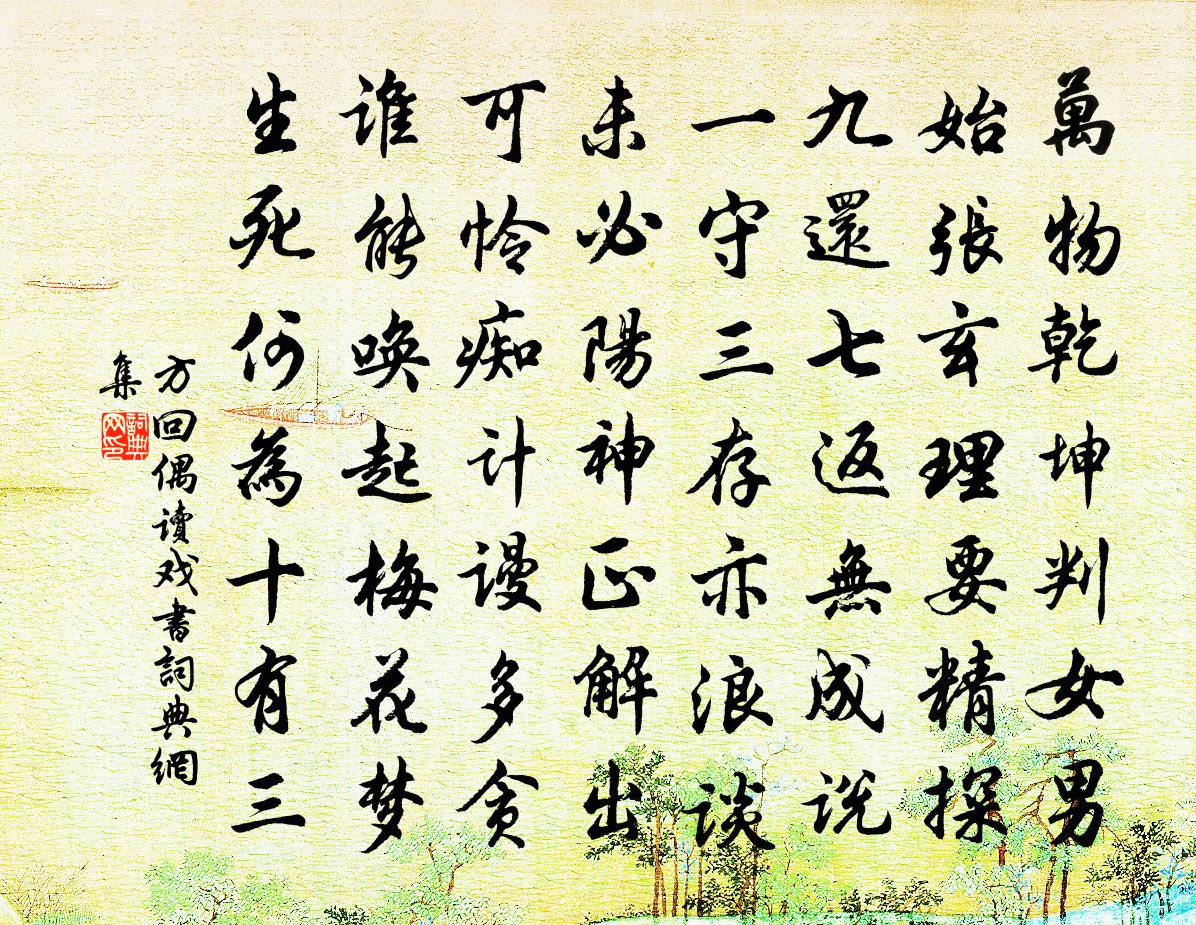 萬物乾坤判女男
始張玄理要精探
九還七返無成说
一守三存亦浪谈
未必陽神正解出
可怜痴计谩多贪
谁能唤起梅花梦
生死何為十有三
方回偶讀戏書詞典網
集
詞典網印